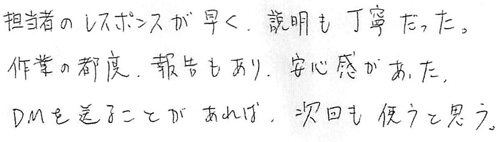 担当者のレスポンスが早く、説明も丁寧だった。
作業の都度、報告もあり、安心感があった。
DMを送ることがあれば、次回も使うと思う。